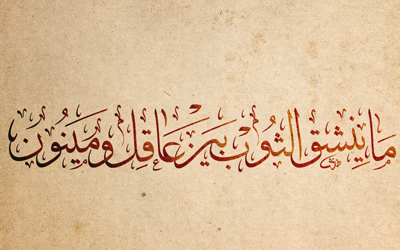 مَا يِنشق الثوُب بَين عَاقِل ومَينُون